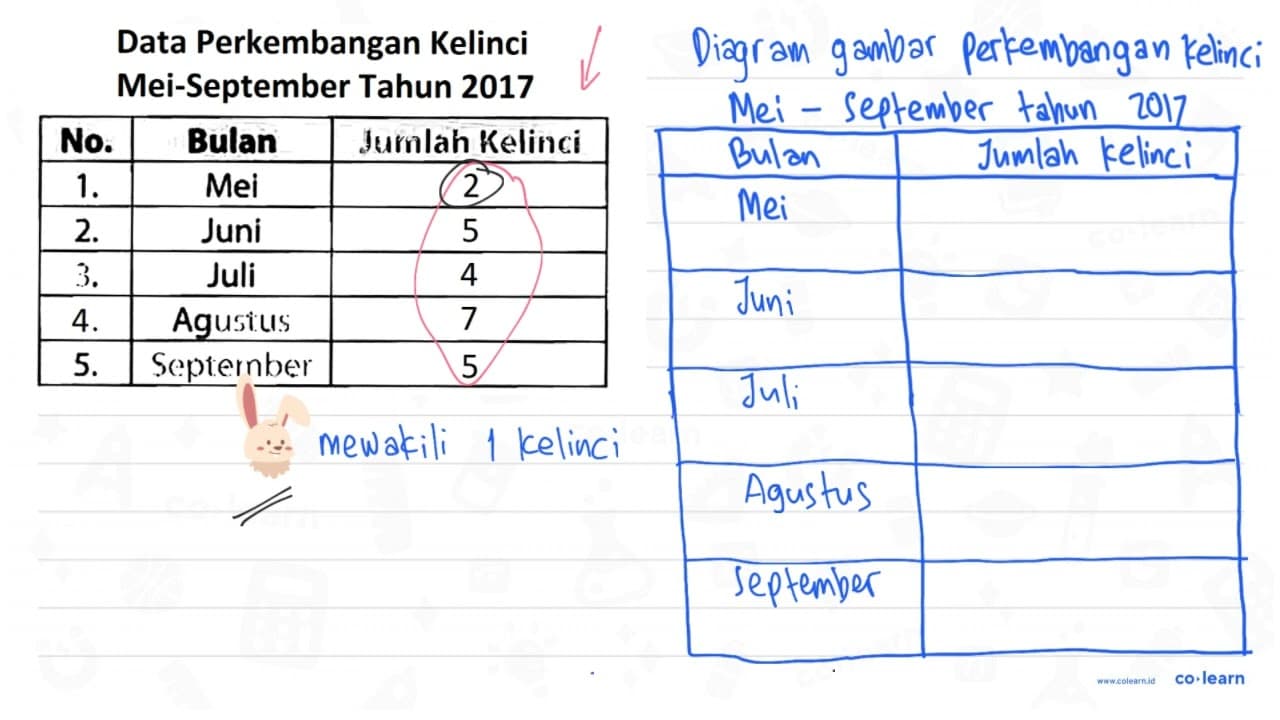 Data Perkembangan Kelinci
Mei-September Tahun 2017
No. Bulan Jumlah Kelinci
1. Mei 2
2. Juni 5
3. Juli 4
4. Agustus 7
5. September 5
mewakili 1 kelinci
Diagram gambar perkembangan kelinci
Mei - September tahun 2017
Bulan Jumlah kelinci
Mei
Juni
Juli
Agustus
September
www.colearn.id co·learn